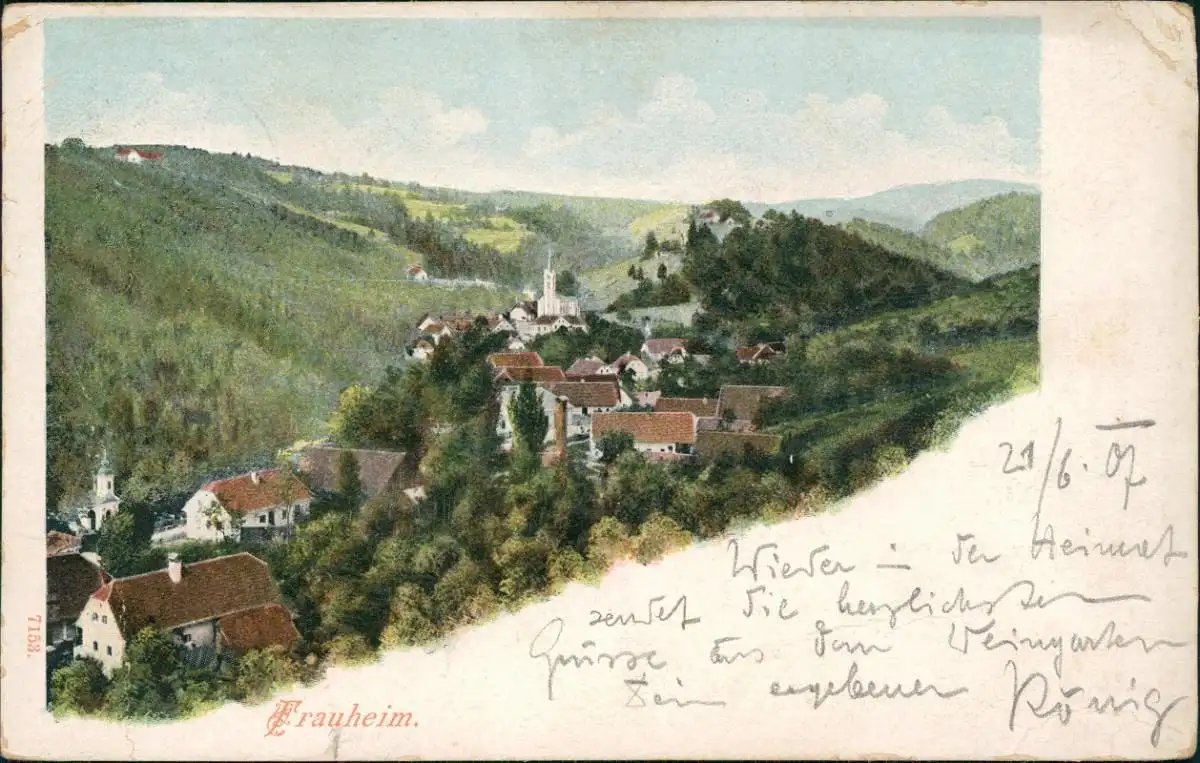 21/6.07
Wieder in der Heimat
sendet die herzlichsten
Grüsse aus dem Weingarten
Dein ergebener König
Frauheim.
7153.